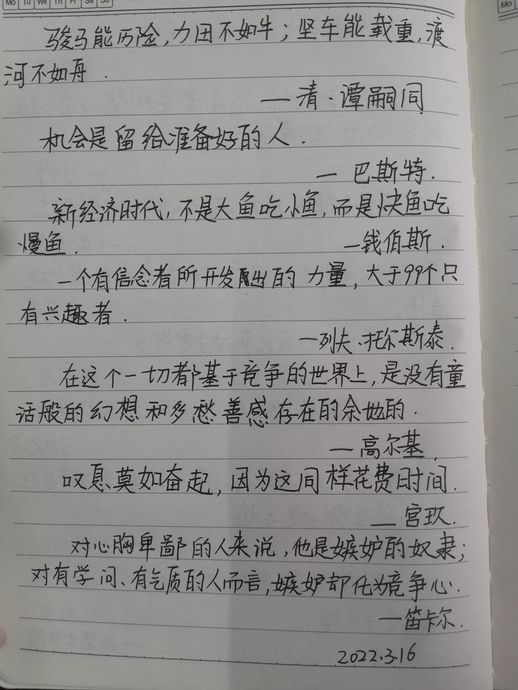 Mo Tu We Th Fr Sa Su
Mo
骏马能历险，力田不如牛；坚车能载重，渡
河不如舟．
—清·谭嗣同
机会是留给准备好的人．
— 巴斯特．
新经济时代，不是大鱼吃小鱼，而是快鱼吃
慢鱼．
—钱伯斯．
一个有信念者所开发出的力量，大于99个只
有兴趣者．
—列夫．托尔斯泰．
在这个一切都基于竞争的世界上，是没有童
话般的幻想和多愁善感存在的余地的．
—高尔基．
叹息莫如奋起，因为这同样花费时间．
—宫玖．
对心胸卑鄙的人来说，他是嫉妒的奴隶；
对有学问、有气质的人而言，嫉妒却化为竞争心．
—笛卡尔．
2022.3.16